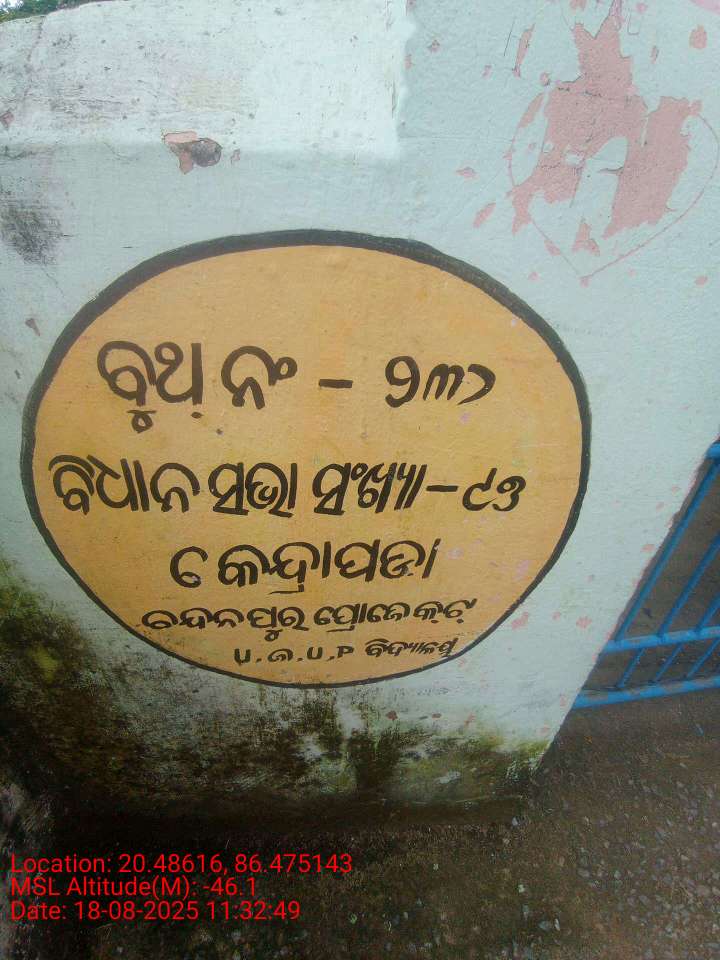 ବୁଥ୍ ନଂ - ୨୩୨
ବିଧାନ ସଭା ସଂଖ୍ୟା - ୯୬
କେନ୍ଦ୍ରାପଡା
ଚନ୍ଦନପୁର ପ୍ରୋଜେକ୍ଟ
U.ଜ.U.P ବିଦ୍ୟାଳୟ
Location: 20.48616, 86.475143
MSL Altitude(M): -46.1
Date: 18-08-2025 11:32:49